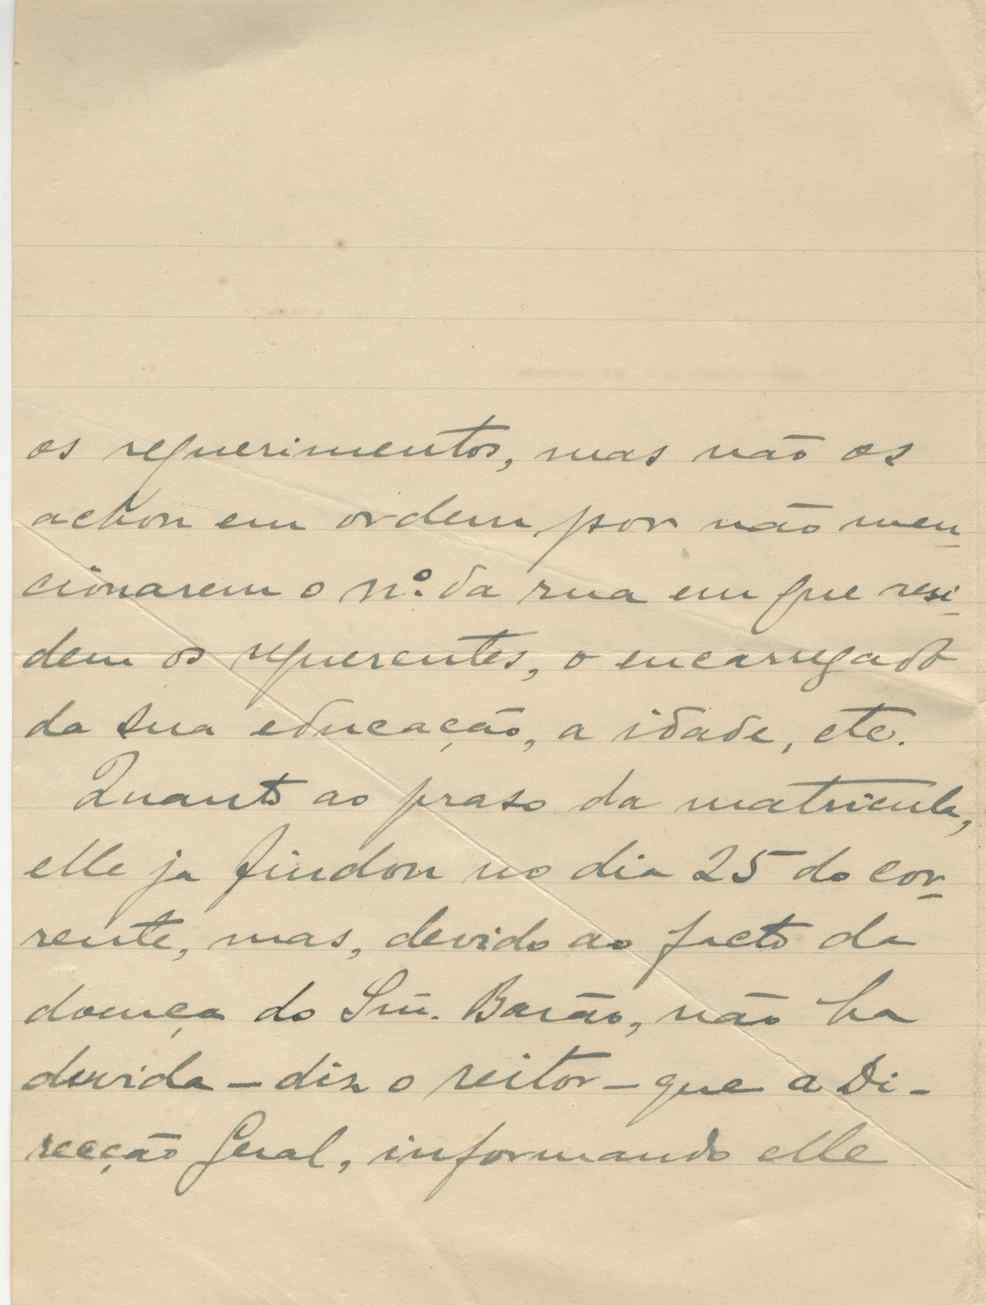 os requerimentos, mas não os
achou em ordem por não men-
cionarem o nº. da rua em que resi-
dem os requerentes, o encarregado
da sua educação, a idade, etc.
Quanto ao praso da matricula,
elle ja findou no dia 25 do cor-
rente, mas, devido ao facto da
doença do Snr. Barão, não ha
duvida - diz o reitor - que a Di-
recção Geral, informando elle